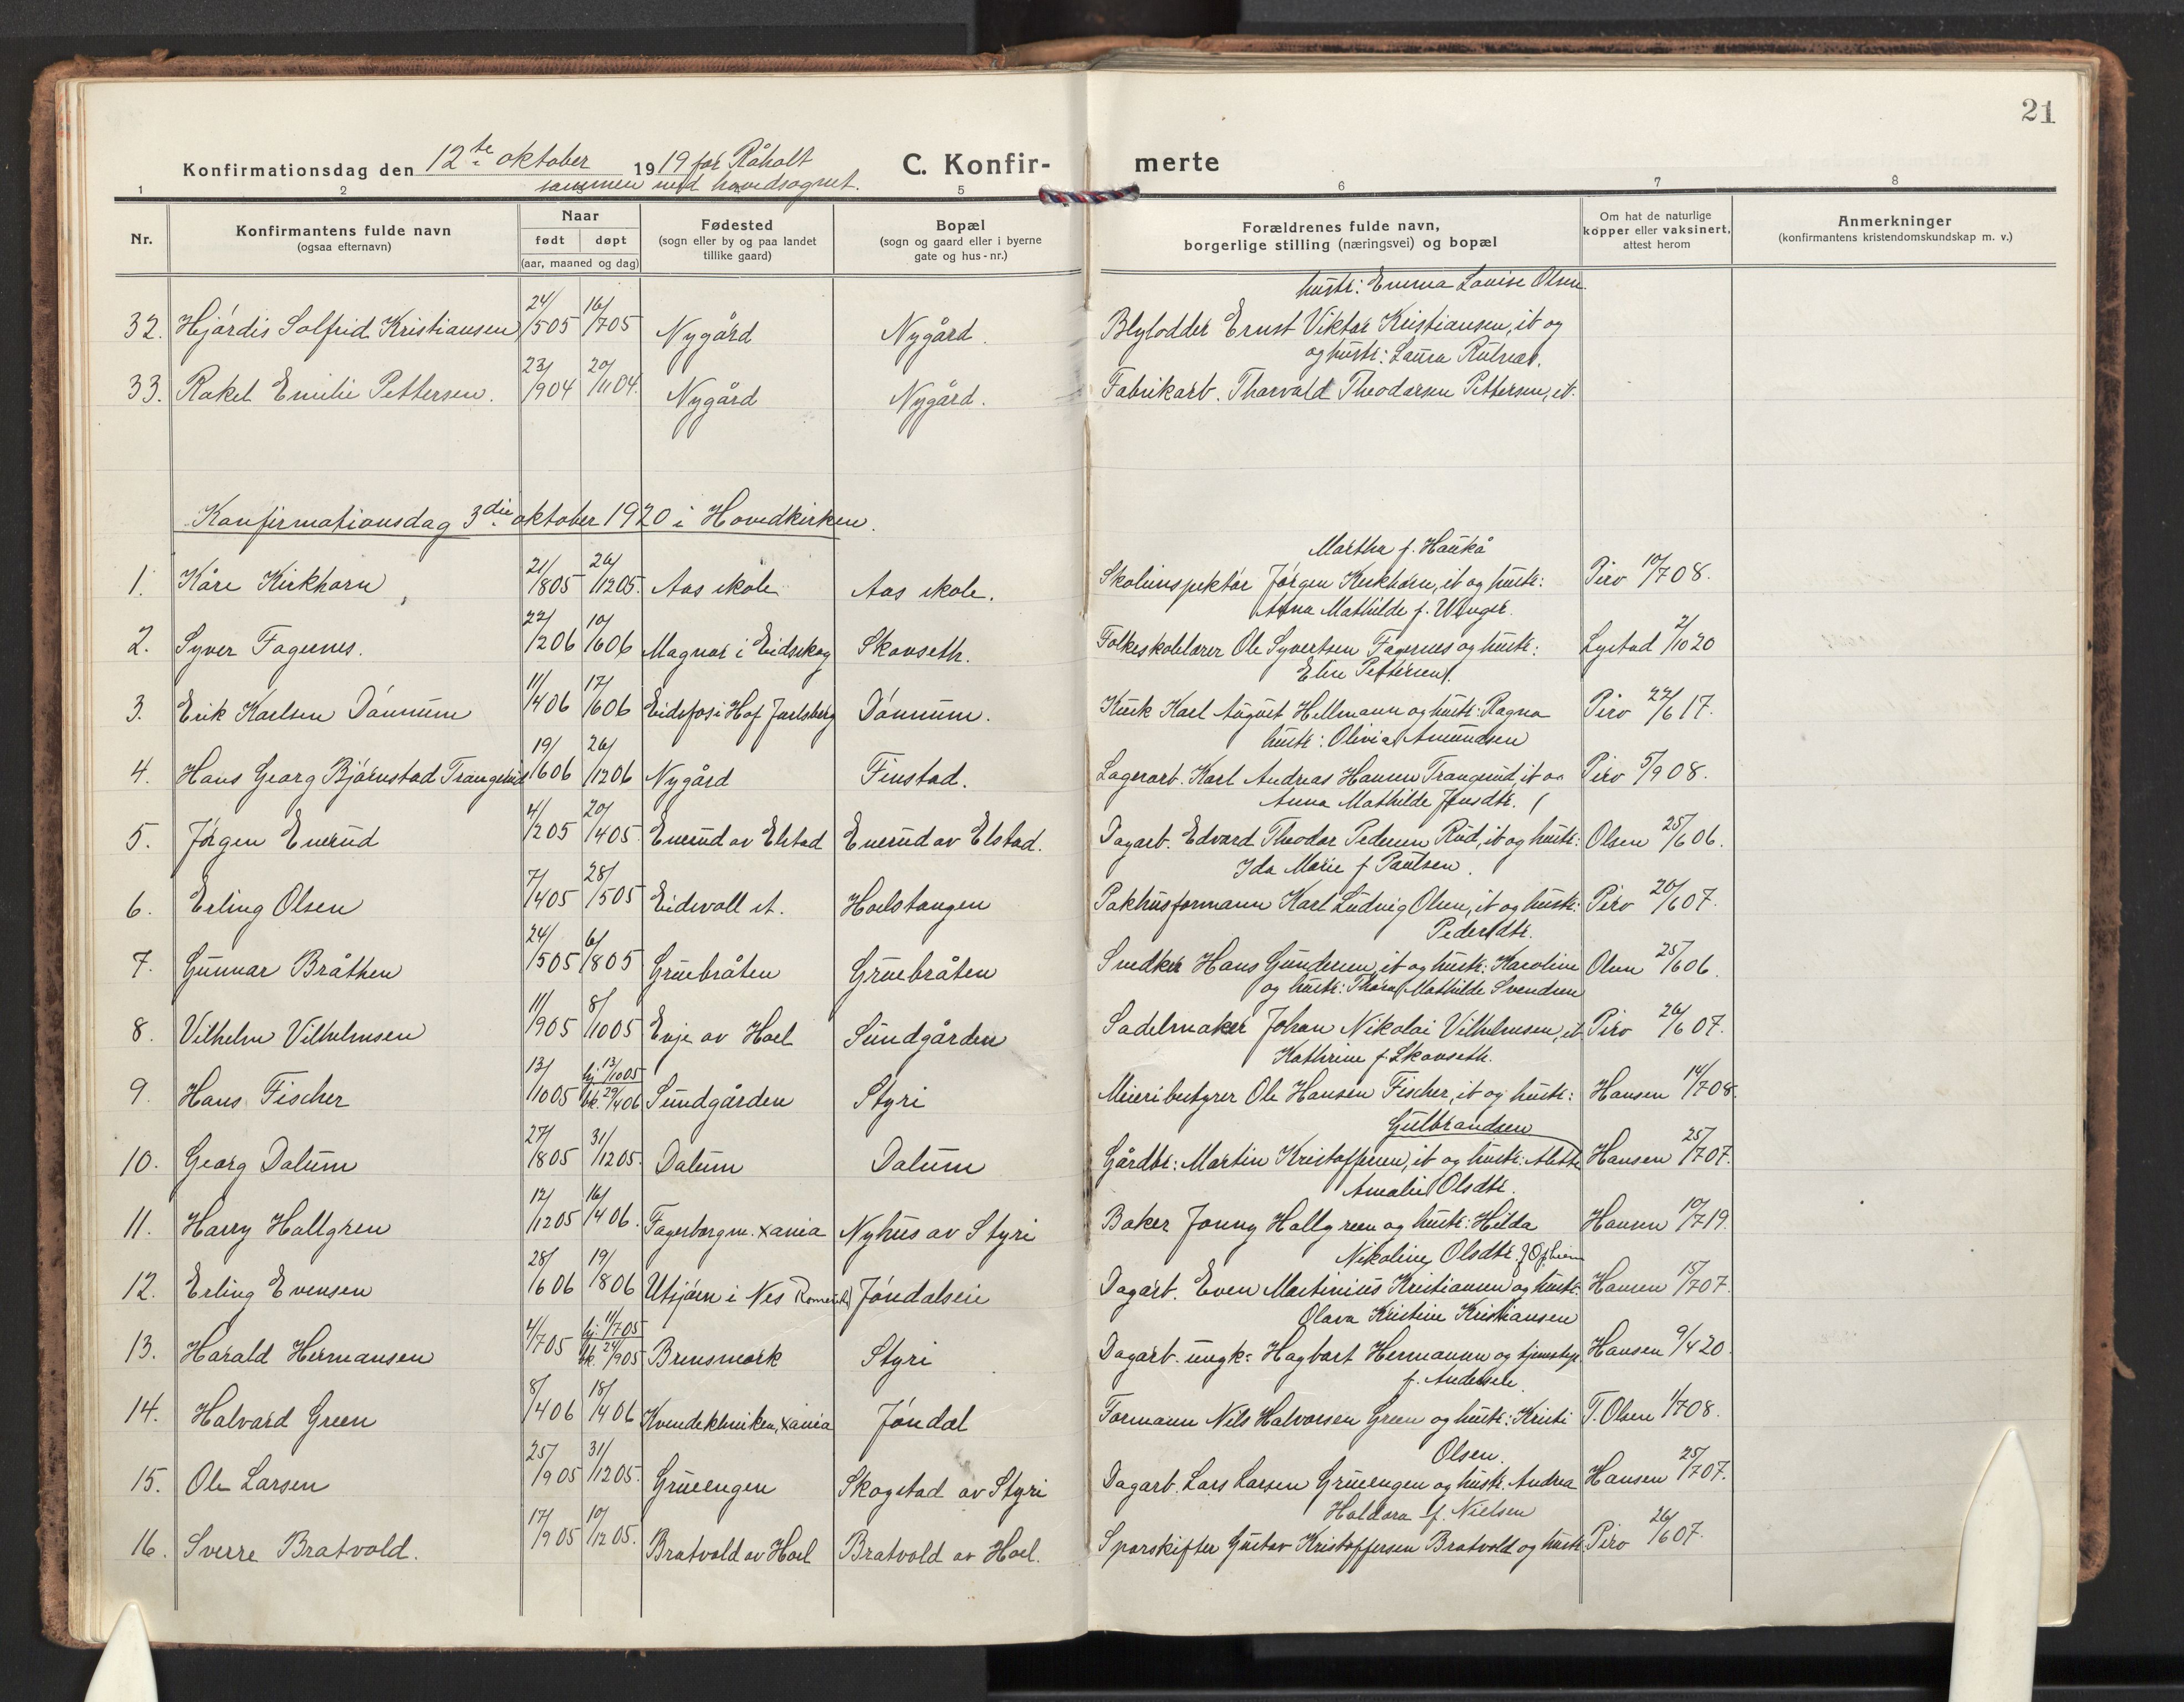 21
Konfirmationsdag den 12te oktober 1919 for Råholt
sammen med hovedsognet.
C. Konfir- merte
1 2 5 6 7 8
Nr. Konfirmantens fulde navn (ogsaa efternavn) Naar født døpt (aar, maaned og dag) Fødested (sogn eller by og paa landet tillike gaard) Bopæl (sogn og gaard eller i byerne gate og hus-nr.) Forældrenes fulde navn, borgerlige stilling (næringsvei) og bopæl Om hat de naturlige kopper eller vaksinert, attest herom Anmerkninger (konfirmantens kristendomskundskap m. v.)
hustr: Emma Lovise Olsen.
32. Hjørdis Solfrid Kristiansen 24/505 16/705 Nygård Nygård. Blylodder Ernst Viktor Kristiansen, it og
og hustr: Laura
33. Rakel Emilie Pettersen. 23/904 20/1104. Nygård Nygård. Fabrikarb. Thorvald Theodorsen Pettersen, it.
Konfirmationsdag 3die oktober 1920 i Hovedkirken.
Martha f. Haukå
1. Kåre Kirkhorn 21/805 26/1205. Aas skole Aas skole. Skoleinspektør Jørgen Kirkhorn, it og hustr: Piro 10/708.
Anna Mathilde f. Winger.
2. Syver Fagernes. 22/206 10/606 Magnor i Eidskog Skovseth. Folkeskolelærer Ole Syvertsen Fagernes og hustr: Lystad 2/1020
Elise Pettersen.
3. Erik Karlsen Dønnum 11/406 17/606 Eidsfos i Hof Jarlsberg Dønnum. Kusk Karl August Hellmann og hustr: Ragna Piro 22/617.
hustr: Olivia Amundsen
4. Hans Georg Bjørnstad Trangerud 19/606 26/1206 Nygård Finstad. Lagerarb. Karl Andreas Hansen Trangerud, it og Piro 5/908.
Anna Mathilde Jensdtr.
5. Jørgen Enerud 4/205 20/405 Enerud av Elstad Enerud av Elstad. Dagarb. Edvard Theodor Pedersen Rud, it og hustr: Olsen 25/606.
Ida Marie f. Paulsen.
6. Erling Olsen 7/405 28/505 Eidsvoll st. Hoelstangen Pakhusformann Karl Ludvig Olsen, it og hustr: Piro 20/607.
Pedersdtr.
7. Gunnar Bråthen 24/505 6/805 Gruebråten Gruebråten Snedker Hans Gundersen, it og hustr: Karoline Olsen 25/606.
og hustr: Thora Mathilde Svendsen
8. Vilhelm Vilhelmsen 11/905 8/1005 Enje av Hoel Sundgården Sadelmaker Johan Nikolai Vilhelmsen, it Piro 26/607.
Kathrine f. Skovseth.
9. Hans Fischer 13/1005 hj. 13/1005 bk. 29/406 Sundgården Styri Meieribestyrer Ole Hansen Fischer, it og hustr: Hansen 14/708.
Gulbrandsen
10. Georg Dalum 27/805 31/1205. Dalum Dalum Gårdbr: Martin Kristoffersen, it og hustr: Alette Hansen 25/707.
Amalie Olsdtr.
11. Harry Hallgren 12/1205 16/406. Fagerborg m. Xania Nyhus av Styri Baker Jonny Hallgreen og hustr: Hilda Hansen 10/719.
Nikoline Olsdtr. f. Opheim
12. Erling Evensen 28/606 19/806 Utsjøen i Nes Romerike Jøndalseie Dagarb. Even Martinius Kristiansen og hustr: Hansen 15/707.
Olava Kristine Kristiansen
13. Harald Hermansen 4/705 hj. 11/705 bk. 24/905 Brensmork Styri Dagarb. ungk: Hagbart Hermansen og tjenestep. Hansen 9/420.
f. Andersen.
14. Halvard Green 8/406 18/406 Kvindeklinikken, Xania Jøndal Formann Nils Halvorsen Green og hustr: Kristi T. Olsen 1/708.
Olsen.
15. Ole Larsen 25/905 31/1205. Grueengen Skogstad av Styri Dagarb. Lars Larsen Grueengen og hustr. Andrea Hansen 25/707.
Haldora f. Nielsen
16. Sverre Bratvold. 17/905 10/1205. Bratvold av Hoel Bratvold av Hoel. Sporskifter Gustav Kristoffersen Bratvold og hustr. Piro 26/607.